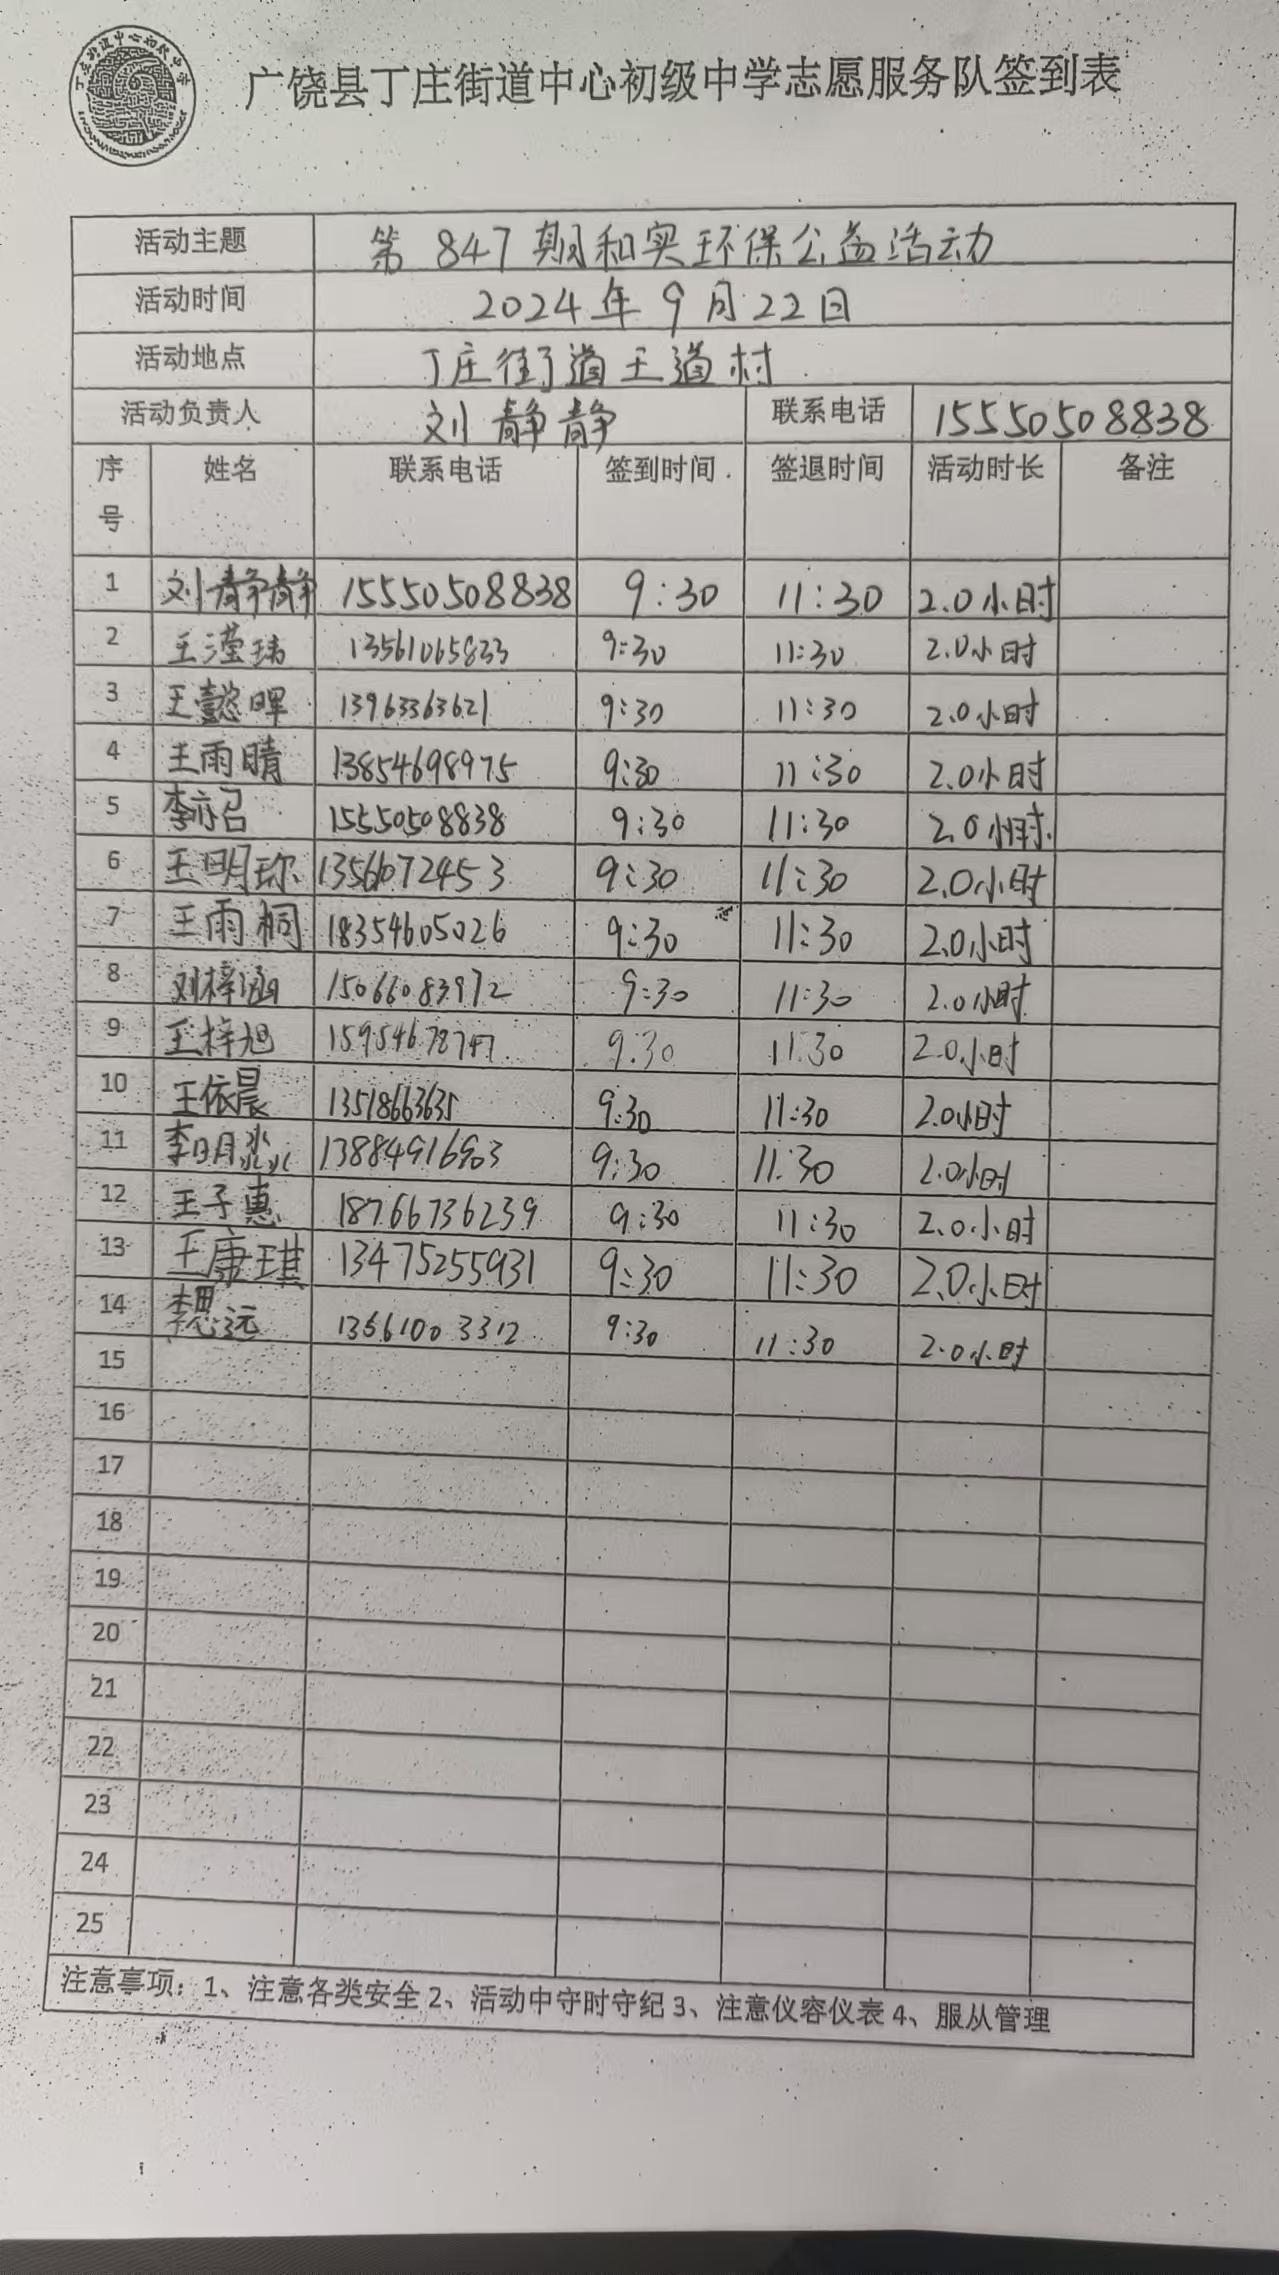 广饶县丁庄街道中心初级中学志愿服务队签到表
活动主题 第847期和实环保公益活动
活动时间 2024年9月22日
活动地点 丁庄街道王道村
活动负责人 刘静静 联系电话 15550508838
序号 姓名 联系电话 签到时间 签退时间 活动时长 备注
1 刘静静 15550508838 9:30 11:30 2.0小时
2 王滢玮 13561065833 9:30 11:30 2.0小时
3 王懿晖 13963363621 9:30 11:30 2.0小时
4 王雨晴 13854698975 9:30 11:30 2.0小时
5 李亦召 15550508838 9:30 11:30 2.0小时
6 王明珎 9:30 11:30 2.0小时
7 王雨桐 18354605026 9:30 11:30 2.0小时
8 刘梓涵 15066083972 9:30 11:30 2.0小时
9 王梓旭 9:30 11:30 2.0小时
10 王依晨 13518663635 9:30 11:30 2.0小时
11 李明淼 13884916903 9:30 11:30 2.0小时
12 王子惠 18766736239 9:30 11:30 2.0小时
13 王康琪 13475255931 9:30 11:30 2.0小时
14 李思远 9:30 11:30 2.0小时
15
16
17
18
19
20
21
22
23
24
25
注意事项：1、注意各类安全 2、活动中守时守纪 3、注意仪容仪表 4、服从管理